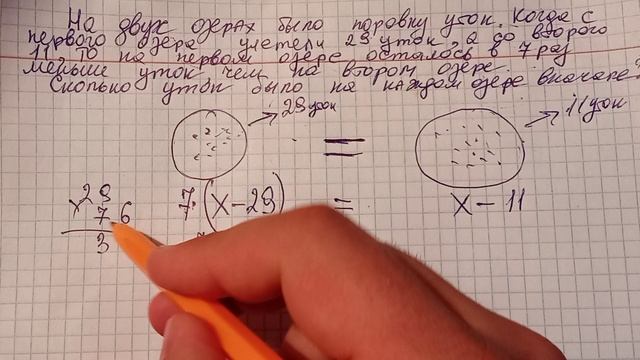 На двух озёрах было поровну уток. Когда с
первого озера улетели 29 уток, а со второго
11, то на первом озере осталось в 7 раз
меньше уток чем на втором озере.
Сколько уток было на каждом озере вначале?
29 уток
=
11 уток
29
× 7 6
3
7·(x-29) = x-11